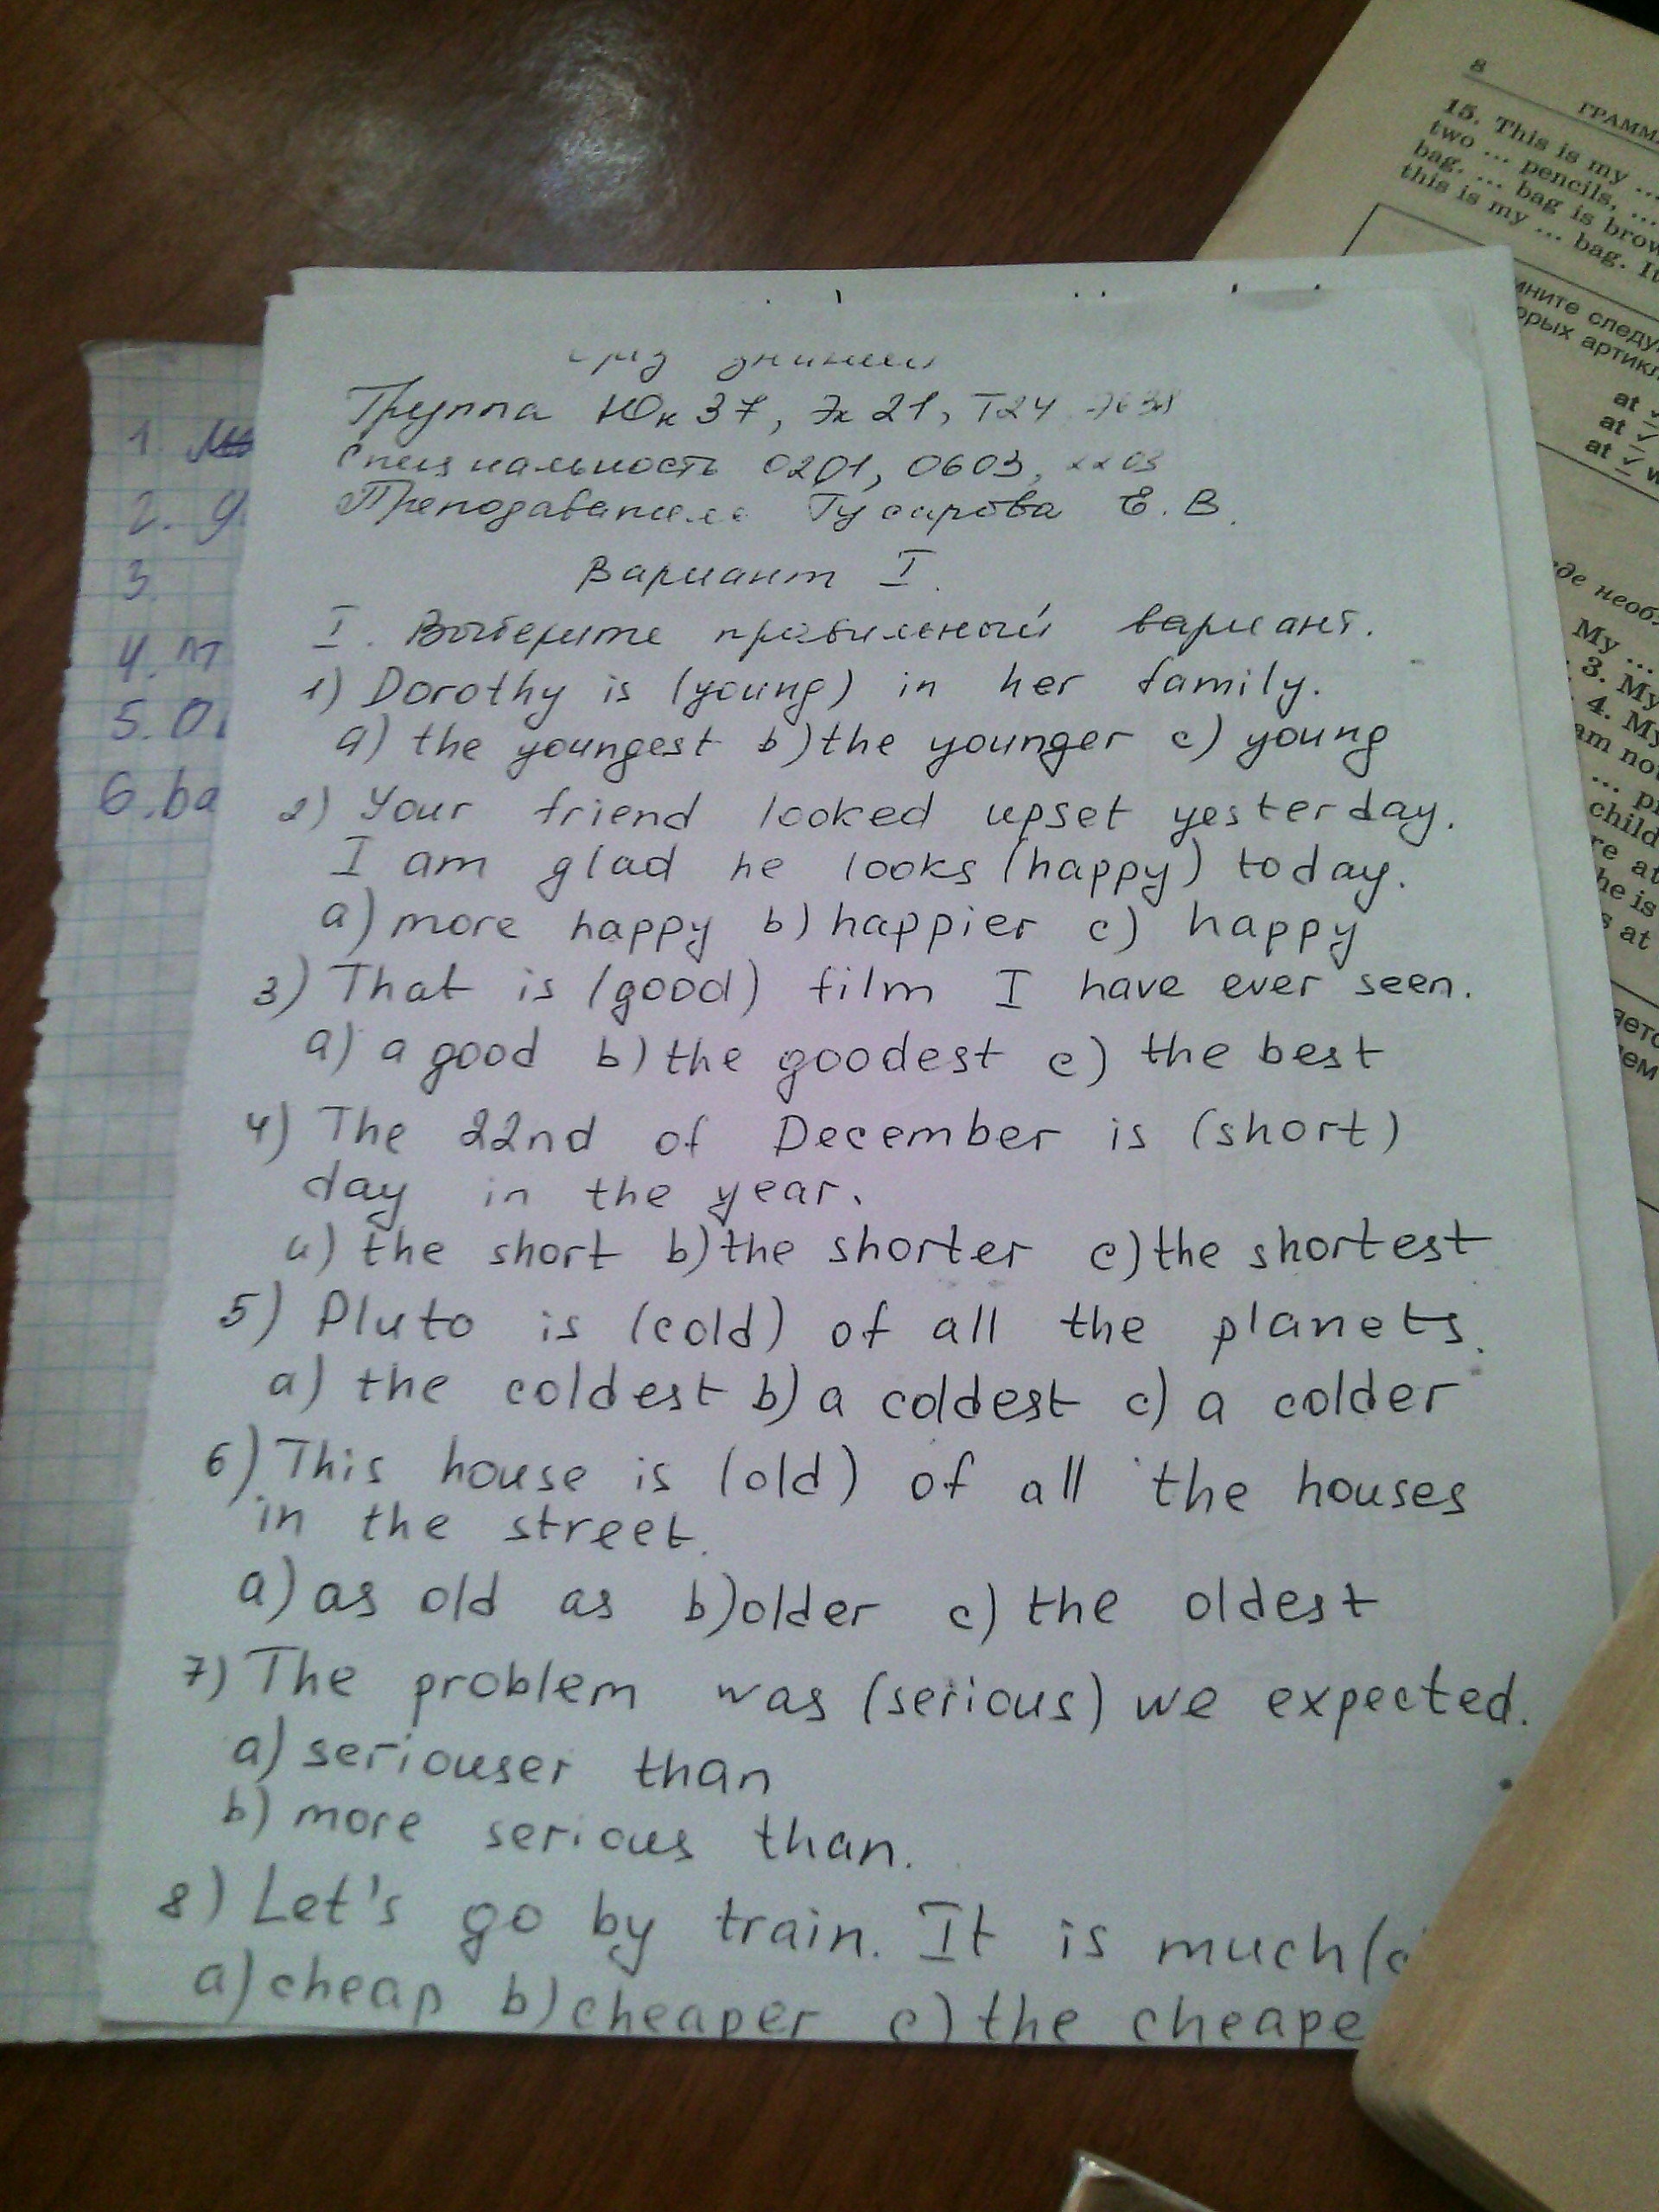 срез знаний
Группа Юк 37, Эк 21, Т24
Специальность 0201, 0603,
Преподаватель Гусарова Е. В.
Вариант I.
I. Выберите правильный вариант.
1) Dorothy is (young) in her family.
a) the youngest b) the younger c) young
2) Your friend looked upset yesterday.
I am glad he looks (happy) today.
a) more happy b) happier c) happy
3) That is (good) film I have ever seen.
a) a good b) the goodest c) the best
4) The 22nd of December is (short)
day in the year.
a) the short b) the shorter c) the shortest
5) Pluto is (cold) of all the planets.
a) the coldest b) a coldest c) a colder
6) This house is (old) of all the houses
in the street.
a) as old as b) older c) the oldest
7) The problem was (serious) we expected.
a) seriouser than
b) more serious than.
8) Let's go by train. It is much (c
a) cheap b) cheaper c) the cheape
1.
2. g
3.
4. пт
5. O
6. ba
8
ГРАММ
15. This is my ...
two ... pencils, ...
bag. ... bag is brow
this is my ... bag. It
мните следу
орых артикл
at
at
at w
где необ
My ...
3. My
4. My
am no
... p
child
re at
he is
s at
яетс
ем